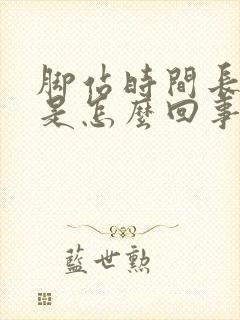 脚佔時間長
是怎麼回事
藍世勲